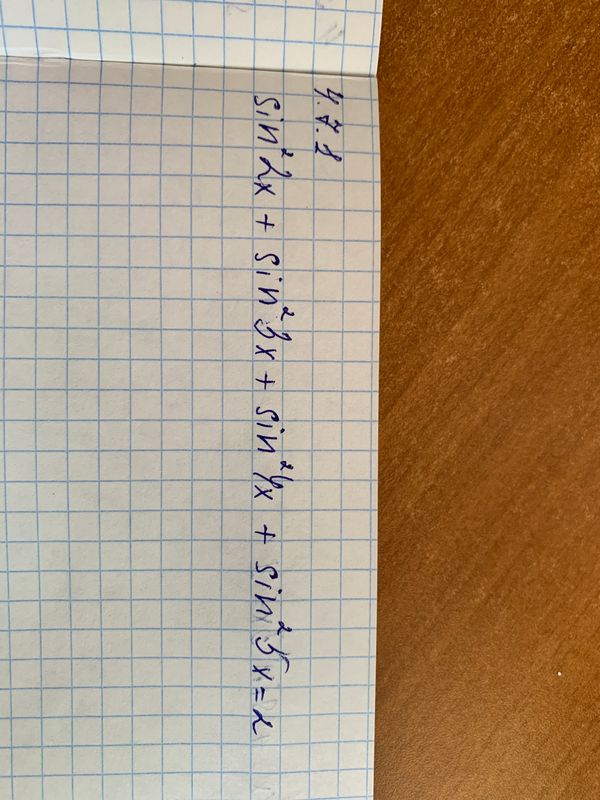 4.7.8
sin²2x + sin²3x + sin²4x + sin²5x = 2